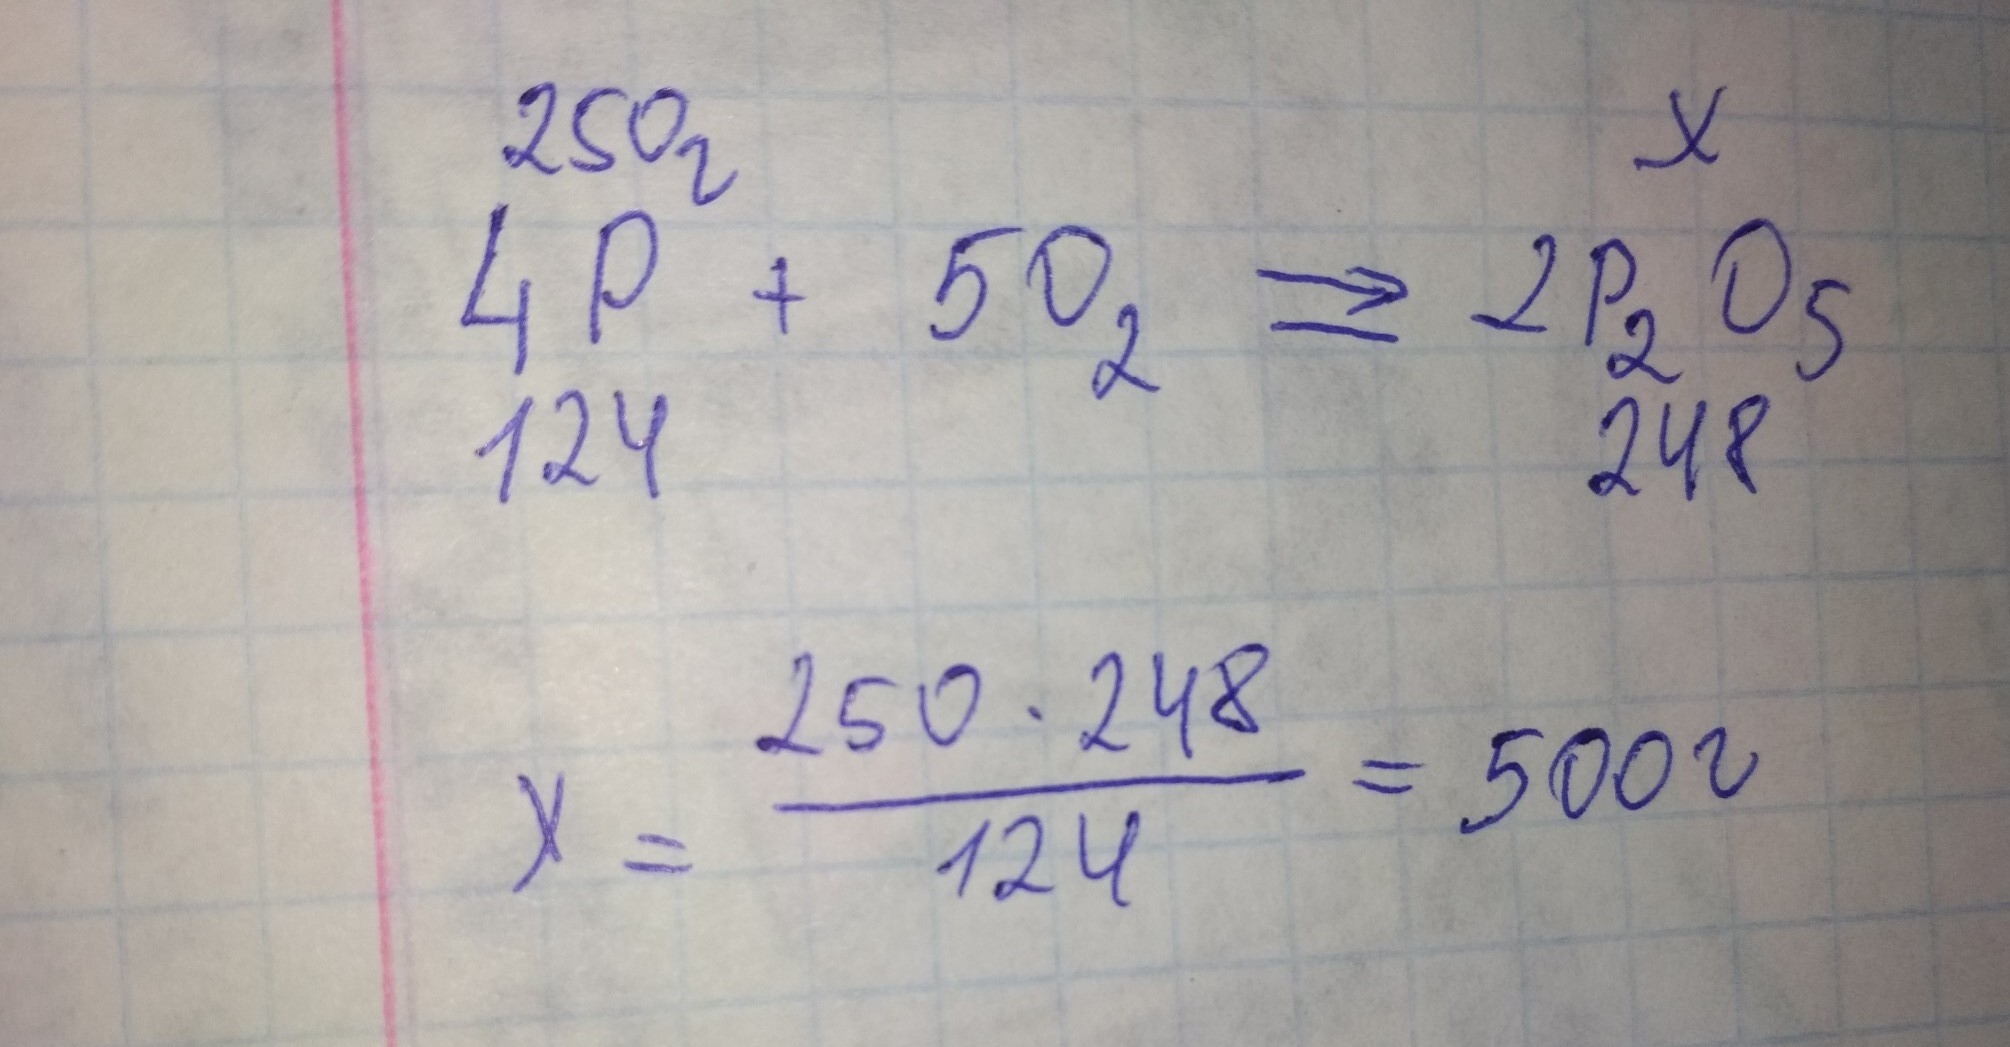 250г x
4P + 5O₂ ⇒ 2P₂O₅
124 248
x = 250 · 248 / 124 = 500г